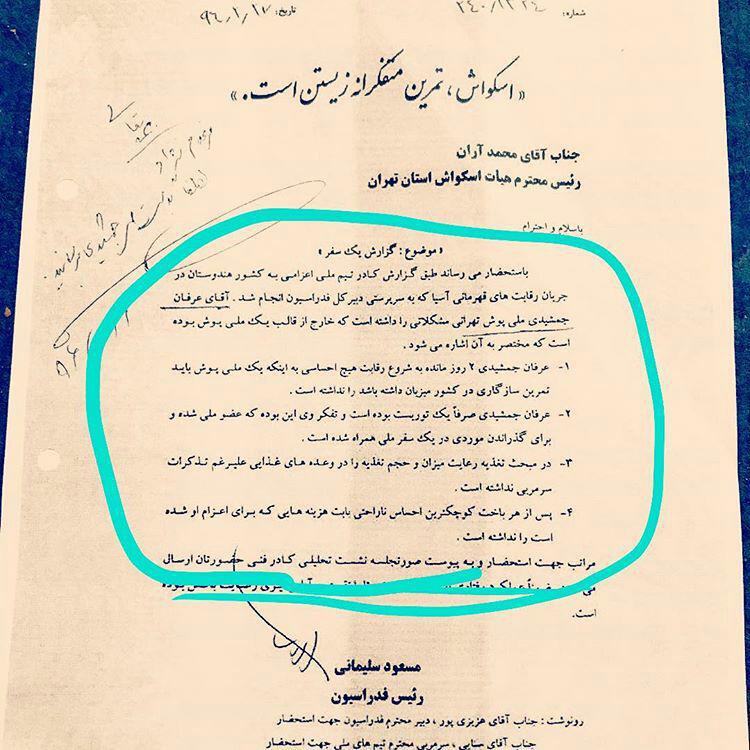 شماره: ۲۴۰/۱۲۲۴
تاریخ: ۹۶/۱/۱۷
« اسکواش ، تمرین متفکرانه زیستن است. »
جناب آقای محمد آران
رئیس محترم هیأت اسکواش استان تهران
باسلام و احترام
« موضوع : گزارش یک سفر »
باستحضار می رساند طبق گزارش کادر تیم ملی اعزامی به کشور هندوستان در
جریان رقابت های قهرمانی آسیا که به سرپرستی دبیرکل فدراسیون انجام شد . آقای عرفان
جمشیدی ملی پوش تهرانی مشکلاتی را داشته است که خارج از قالب یک ملی پوش بوده
است که مختصر به آن اشاره می شود .
۱- عرفان جمشیدی ۲ روز مانده به شروع رقابت هیچ احساسی به اینکه یک ملی پوش باید
تمرین سازگاری در کشور میزبان داشته باشد را نداشته است .
۲- عرفان جمشیدی صرفاً یک توریست بوده است و تفکر وی این بوده که عضو ملی شده و
برای گذراندن موردی در یک سفر ملی همراه شده است .
۳- در مبحث تغذیه رعایت میزان و حجم تغذیه را در وعده های غذایی علیرغم تذکرات
سرمربی نداشته است .
۴- پس از هر باخت کوچکترین احساس ناراحتی بابت هزینه هایی که برای اعزام او شده
است را نداشته است .
مراتب جهت استحضار و به پیوست صورتجلسه نشست تحلیلی کادر فنی حضورتان ارسال
می رضایت بخش بوده
است.
مسعود سلیمانی
رئیس فدراسیون
رونوشت : جناب آقای عزیزی پور ، دبیر محترم فدراسیون جهت استحضار
جناب آقای سنایی ، سرمربی محترم تیم های ملی جهت استحضار